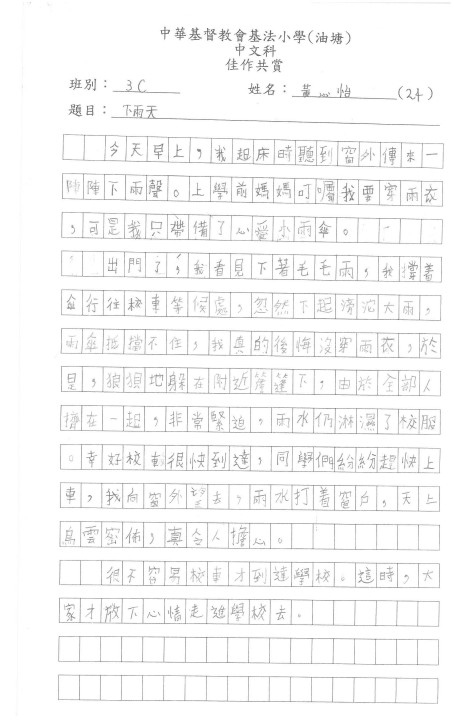 中華基督教會基法小學(油塘)
中文科
佳作共賞
班別： 3C 姓名： 黃心怡 (24)
題目： 下雨天
今天早上，我起床時聽到窗外傳來一
陣陣下雨聲。上學前媽媽叮囑我要穿雨衣
，可是我只帶備了心愛小雨傘。
出門了，我看見下著毛毛雨，我撐着
傘行往校車等候處，忽然下起滂沱大雨，
雨傘抵擋不住，我真的後悔沒穿雨衣，於
是，狼狽地躲在附近簷篷下，由於全部人
擠在一起，非常緊迫，雨水仍淋濕了校服
。幸好校車很快到達，同學們紛紛趕快上
車，我向窗外望去，雨水打着窗户，天上
烏雲密佈，真令人擔心。
很不容易校車才到達學校。這時，大
家才放下心情走進學校去。